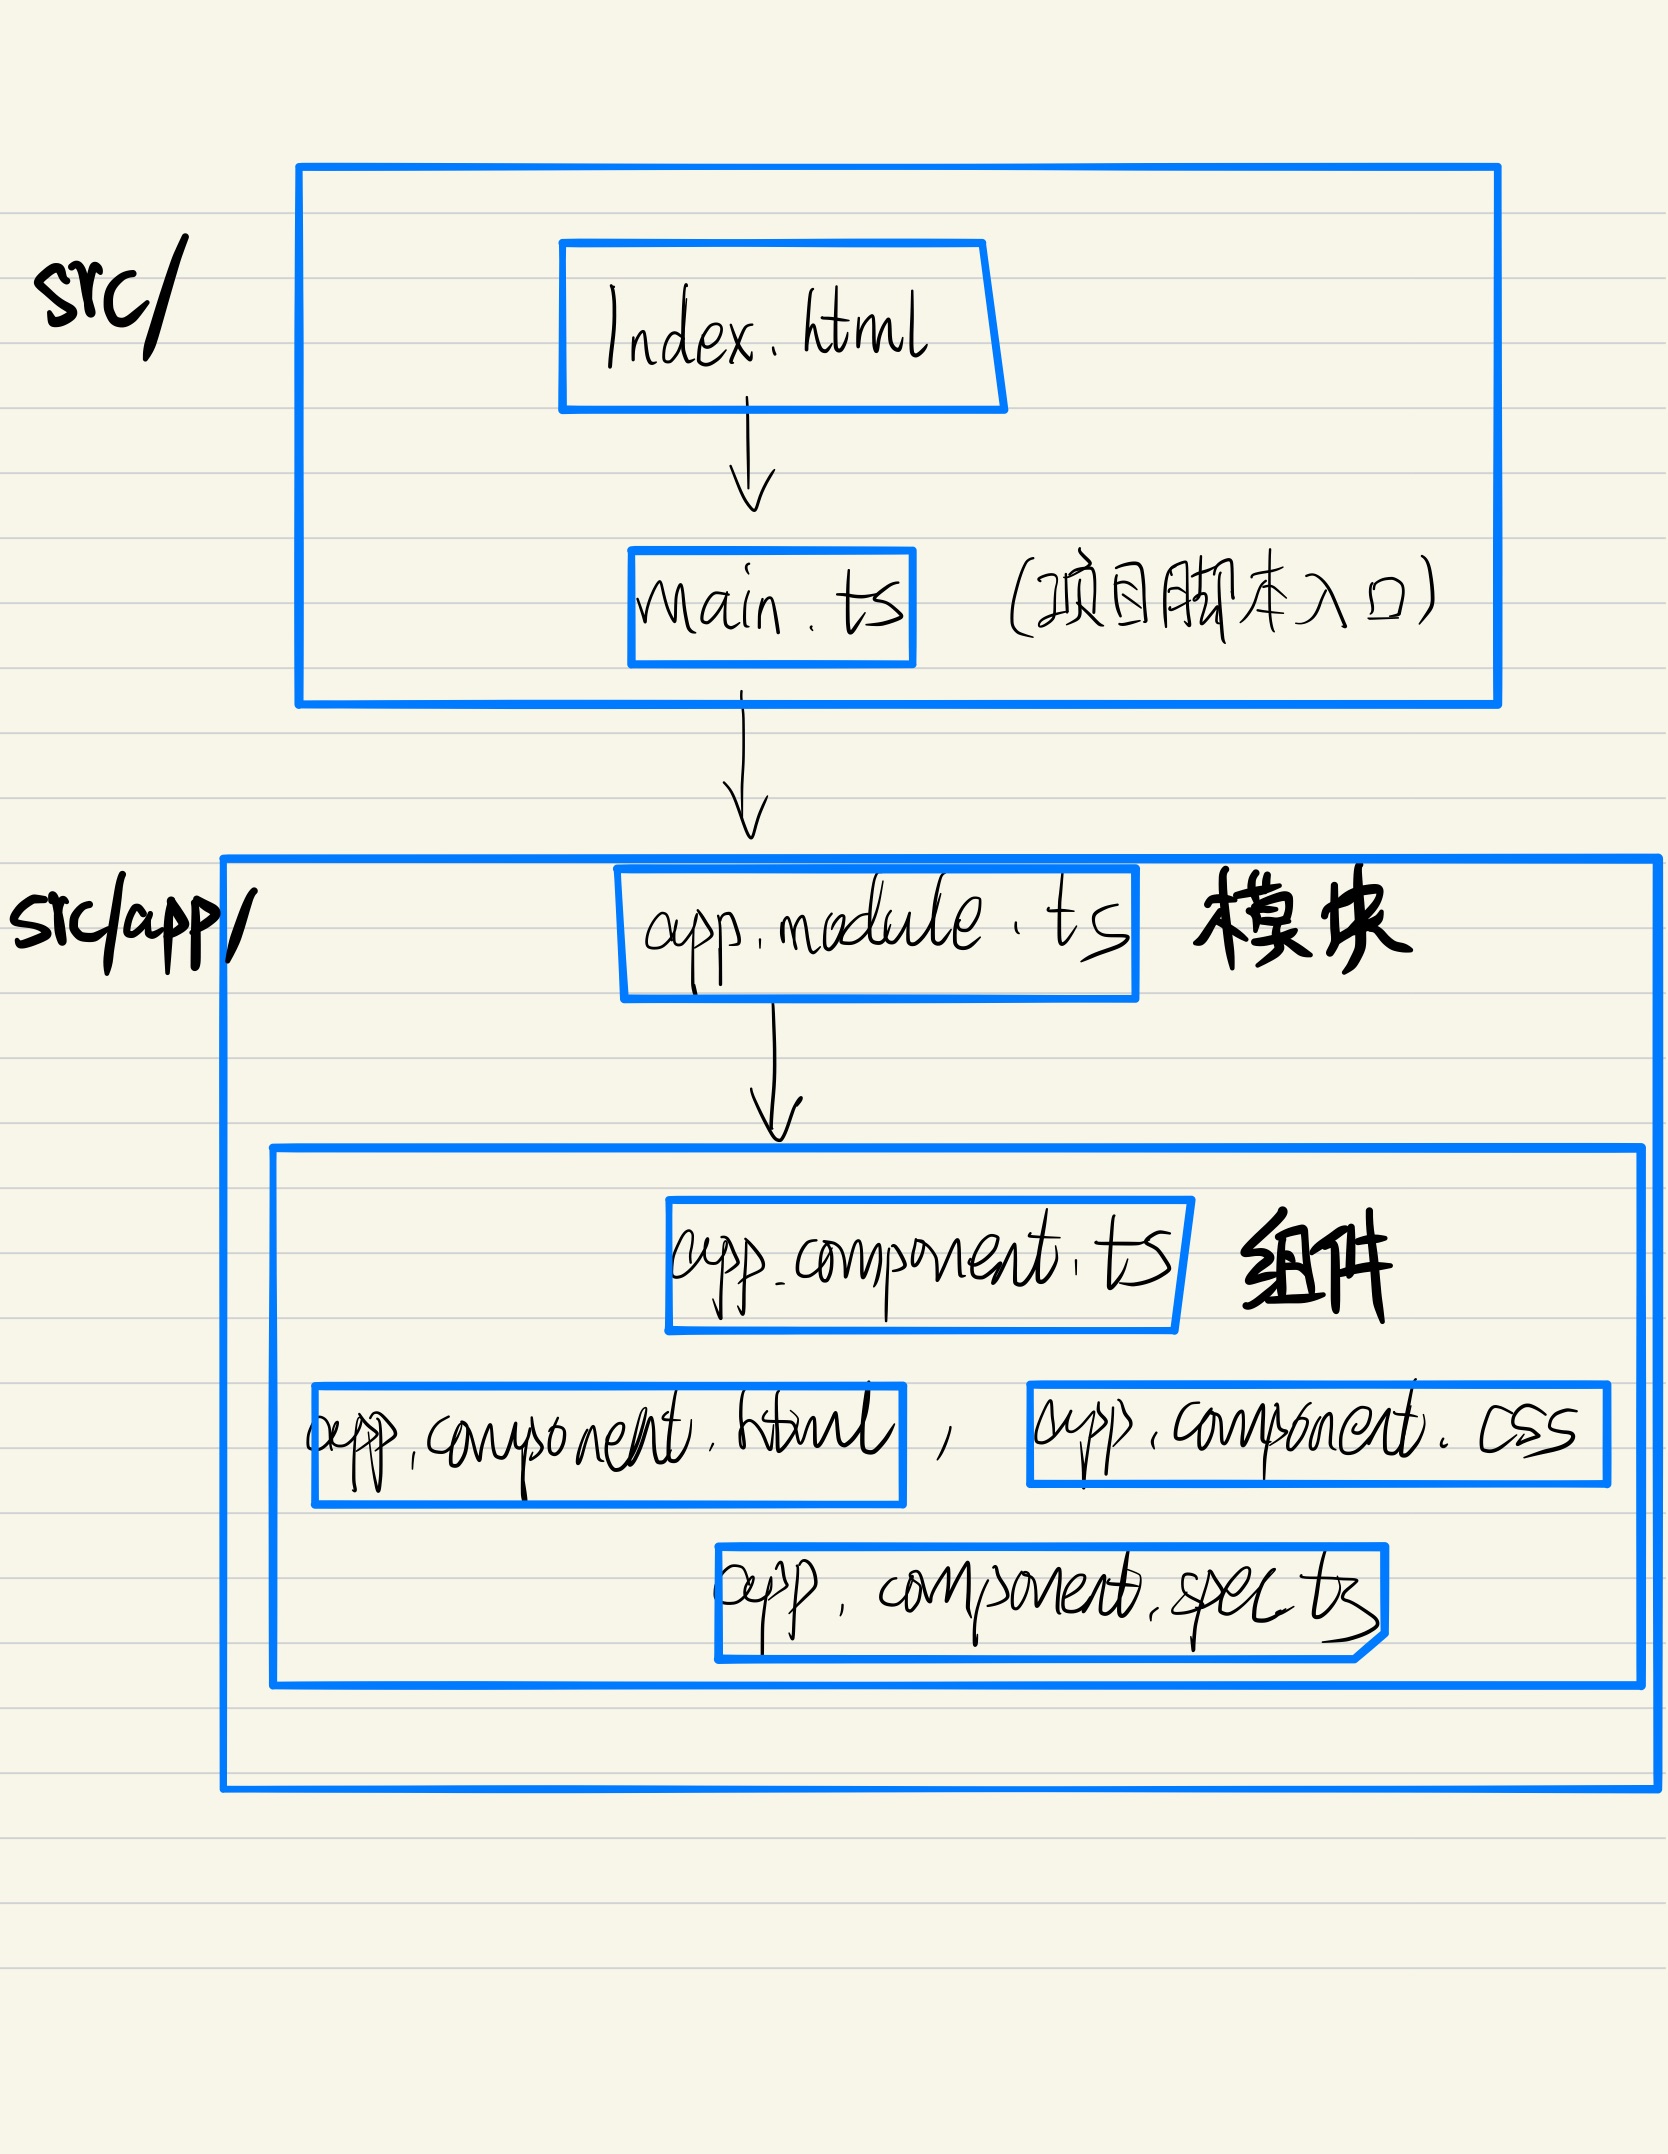 src/
Index.html
main.ts (项目脚本入口)
src/app/ app.module.ts 模块
app.component.ts 组件
app.component.html , app.component.css
app.component.spec.ts